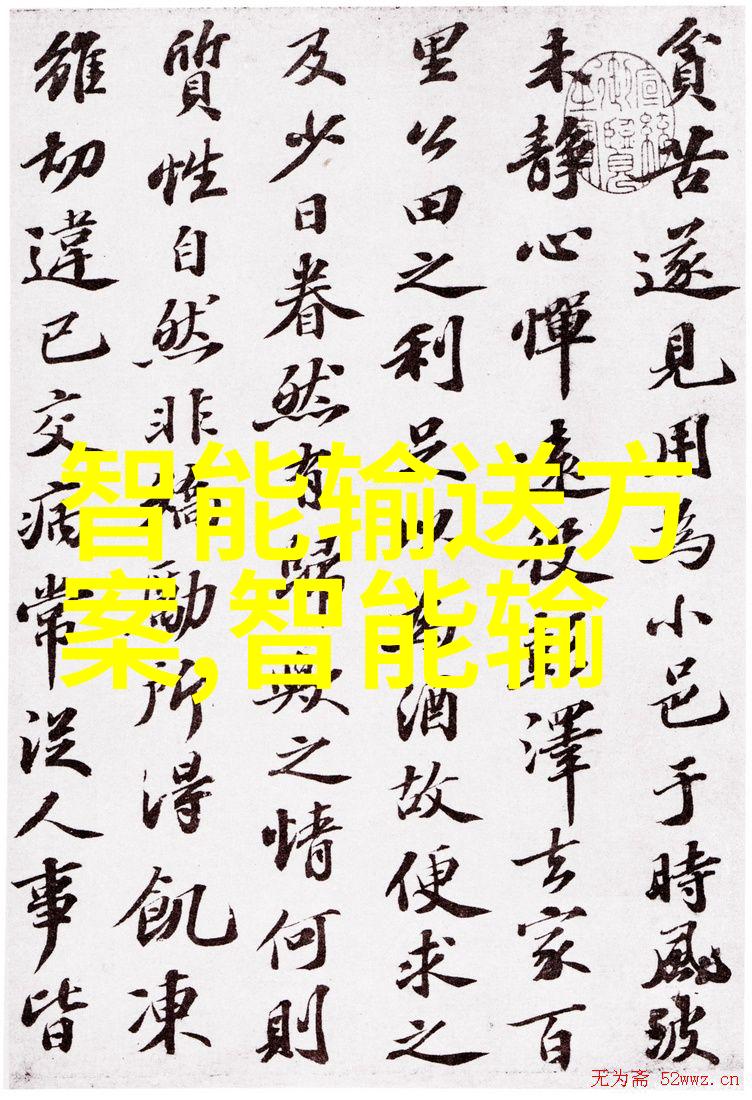 貧苦遂見用為小邑于時風波
未靜心憚遠役彭澤去家百
里公田之利足以為酒故便求之
及少日眷然有歸歟之情何則
質性自然非矯勵所得飢凍
雖切違已交病常從人事皆
智能输送方
案,智能输
无为斋 52wwz.cn